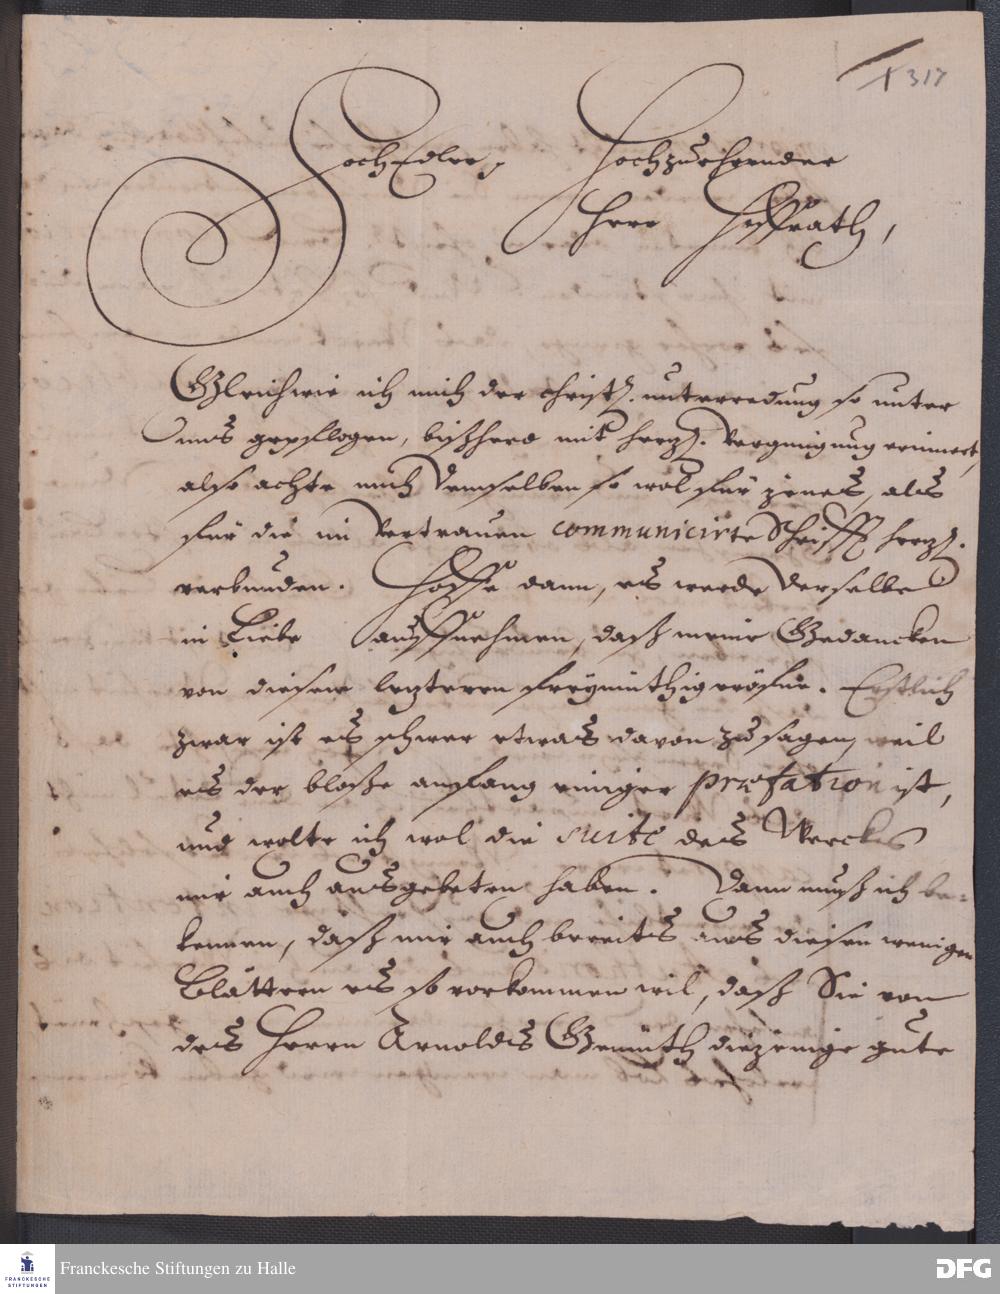 317
HochEdler, Hochzuehrender
Herr Hoffrath,
Gleichwie ich mich der christl. unterredung so unter
uns gepflogen, bißhero mit herzl. Vergnügung erinnert,
also achte mich Demselben so wol für jenes, als
für die im Vertrauen communicirte Schrifft herzl.
verbunden. Hoffe dann, es werde Derselbe
in Liebe auffnehmen, daß meine Gedancken
von diesem letzteren freymüthig eröfne. Erstlich
zwar ist es schwer etwas davon zu sagen, weil
es der bloße anfang einiger præfation ist,
und wolte ich wol die suite des Werckes
mir auch ausgebeten haben. Dann muß ich be-
kennen, daß mir auch bereits aus diesen wenigen
Blättern es so vorkommen wil, daß Sie von
des Herrn Arnolds Gemüth diejenige gute
FRANCKESCHE
STIFTUNGEN
Franckesche Stiftungen zu Halle
DFG